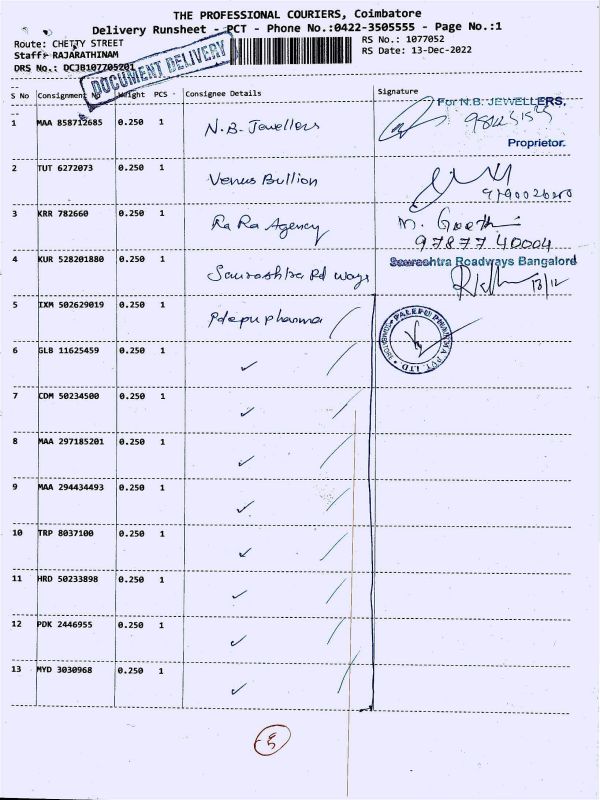 THE PROFESSIONAL COURIERS, Coimbatore
Delivery Runsheet - PCT - Phone No.:0422-3505555 - Page No.:1
Route: CHETTY STREET
RS No.: 1077052
Staff: RAJARATHINAM
RS Date: 13-Dec-2022
DRS No.: DCJB107705201
DOCUMENT DELIVERY
S No Consignment No Weight PCS Consignee Details Signature
1 MAA 858712685 0.250 1 N.B. Jewellers
For N.B. JEWELLERS,
Proprietor.
2 TUT 6272073 0.250 1 Venus Bullion
3 KRR 782660 0.250 1 Ra Ra Agency
97877 40004
4 KUR 528201880 0.250 1 Saurashtra Rd ways
Saurashtra Roadways Bangalord
13/12
5 IXM 502629019 0.250 1 Palepu pharma
PALEPU PHARMA PVT. LTD.
6 GLB 11625459 0.250 1 ✓
7 CDM 50234500 0.250 1 ✓
8 MAA 297185201 0.250 1 ✓
9 MAA 294434493 0.250 1 ✓
10 TRP 8037100 0.250 1 ✓
11 HRD 50233898 0.250 1 ✓
12 PDK 2446955 0.250 1 ✓
13 MYD 3030968 0.250 1 ✓
5